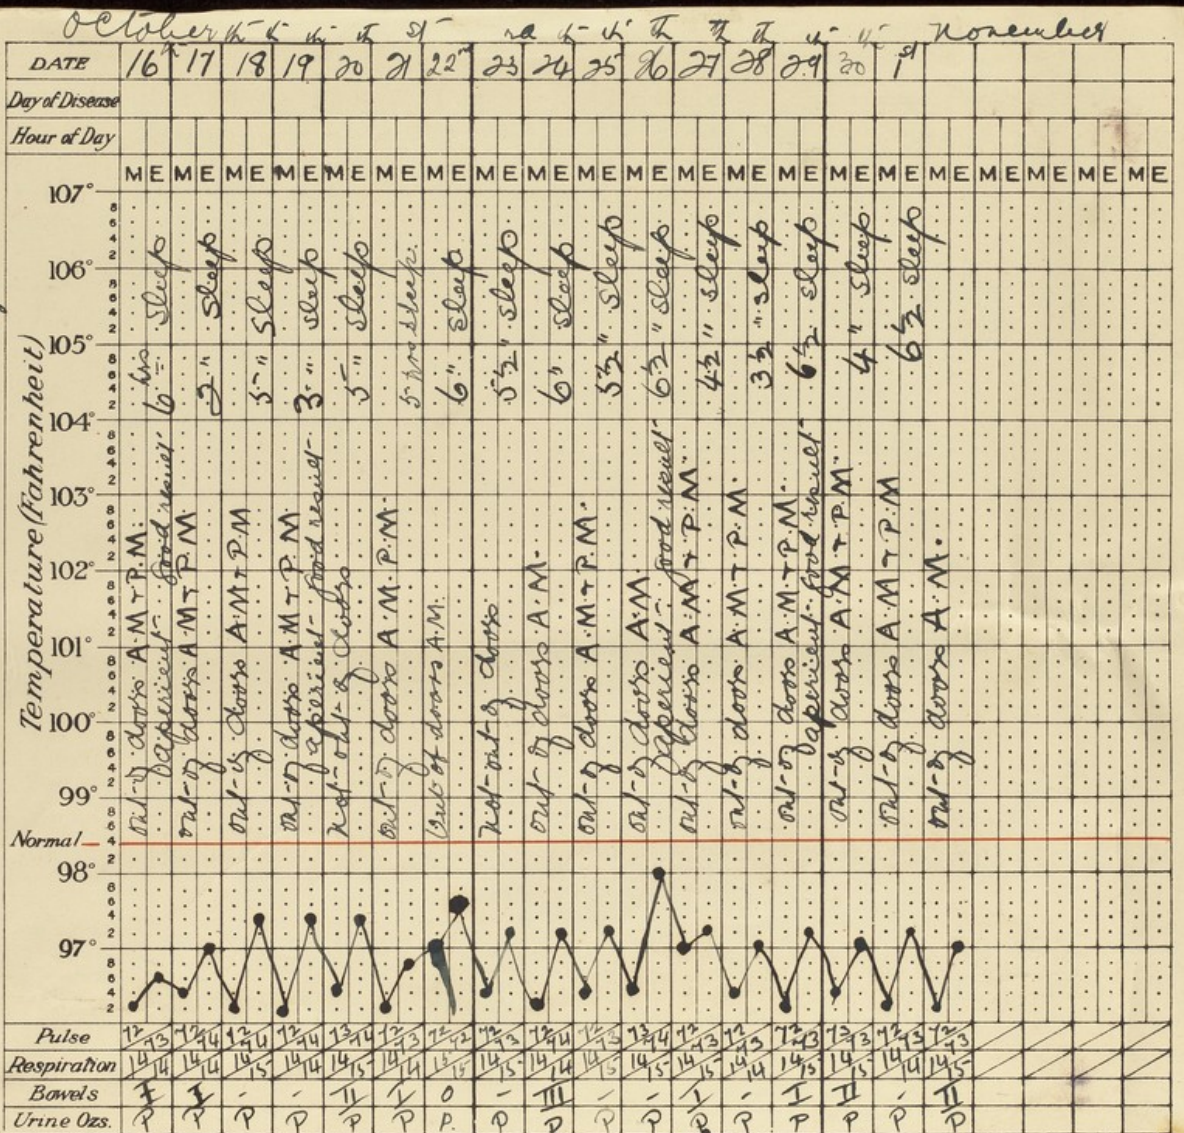 October th th th th st rd th th th th th th th November
DATE 16th 17 18 19 20 21 22nd 23 24 25 26 27 28 29 30 1st
Day of Disease
Hour of Day
M E M E M E M E M E M E M E M E M E M E M E M E M E M E M E M E M E M E M E M E M E
Temperature (Fahrenheit)
107°
106°
105°
104°
103°
102°
101°
100°
99°
Normal
98°
97°
6 hrs sleep
2 " sleep
5 " sleep
3 " sleep
5 " sleep
5 hrs sleep
6 " sleep
5½ " sleep
6 " sleep
5½ " sleep
6½ " sleep
4½ " sleep
3½ " sleep
6½ sleep
4 " sleep
6½ sleep
out of doors A M + P. M.
aperient good result
out of doors A. M + P. M
out of doors A. M + P M
out of doors A M + P. M
aperient good result
not out of doors
out of doors A. M. P. M.
Out of doors A.M.
not out of doors
out of doors A. M.
out of doors A. M + P. M.
out of doors A. M.
aperient good result
out of doors A. M + P. M.
out of doors A. M + P. M.
out of doors A. M + P M.
aperient good result
out of doors A. M + P. M.
out of doors A. M + P. M
out of doors A. M.
Pulse 72/73 72/74 72/74 72/74 73/74 72/73 72/72 72/73 72/74 72/73 73/74 72/73 72/73 72/73 73/73 72/73 72/73
Respiration 14/14 14/14 14/15 14/14 14/15 14/14 15/15 14/15 14/14 14/15 14/15 14/15 14/14 14/15 14/15 14/14 14/15
Bowels I I - - II I 0 - III - - I - I II - II
Urine Ozs. P P P P P P P. P P P P P P P P P P